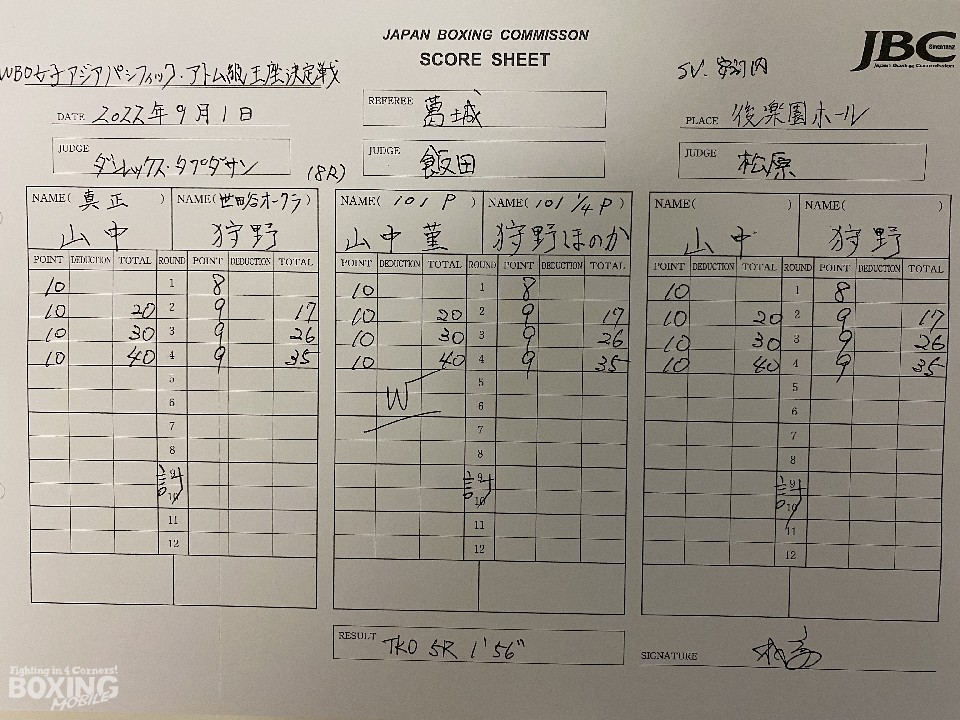 JAPAN BOXING COMMISSON
SCORE SHEET
JBC
Since1952
Japan Boxing Commission
WBO女子アジアパシフィック・アトム級王座決定戦
SV. 安河内
DATE 2022年9月1日
REFEREE 葛城
PLACE 後楽園ホール
JUDGE ダレックス・タプダサン (8R)
JUDGE 飯田
JUDGE 松原
NAME( 真正 ) NAME(世田谷オークラ) NAME( 101 P ) NAME(101 1/4 P) NAME( ) NAME( )
山中 狩野 山中菫 狩野ほのか 山中 狩野
POINT DEDUCTION TOTAL ROUND POINT DEDUCTION TOTAL POINT DEDUCTION TOTAL ROUND POINT DEDUCTION TOTAL POINT DEDUCTION TOTAL ROUND POINT DEDUCTION TOTAL
10 1 8 10 1 8 10 1 8
10 20 2 9 17 10 20 2 9 17 10 20 2 9 17
10 30 3 9 26 10 30 3 9 26 10 30 3 9 26
10 40 4 9 35 10 40 4 9 35 10 40 4 9 35
5 5 5
6 W 6 6
7 7 7
8 8 8
計 9 計 9 計 9
10 10 10
11 11 11
12 12 12
RESULT TKO 5R 1'56"
SIGNATURE
Fighting in 4 Corners!
BOXING
MOBILE